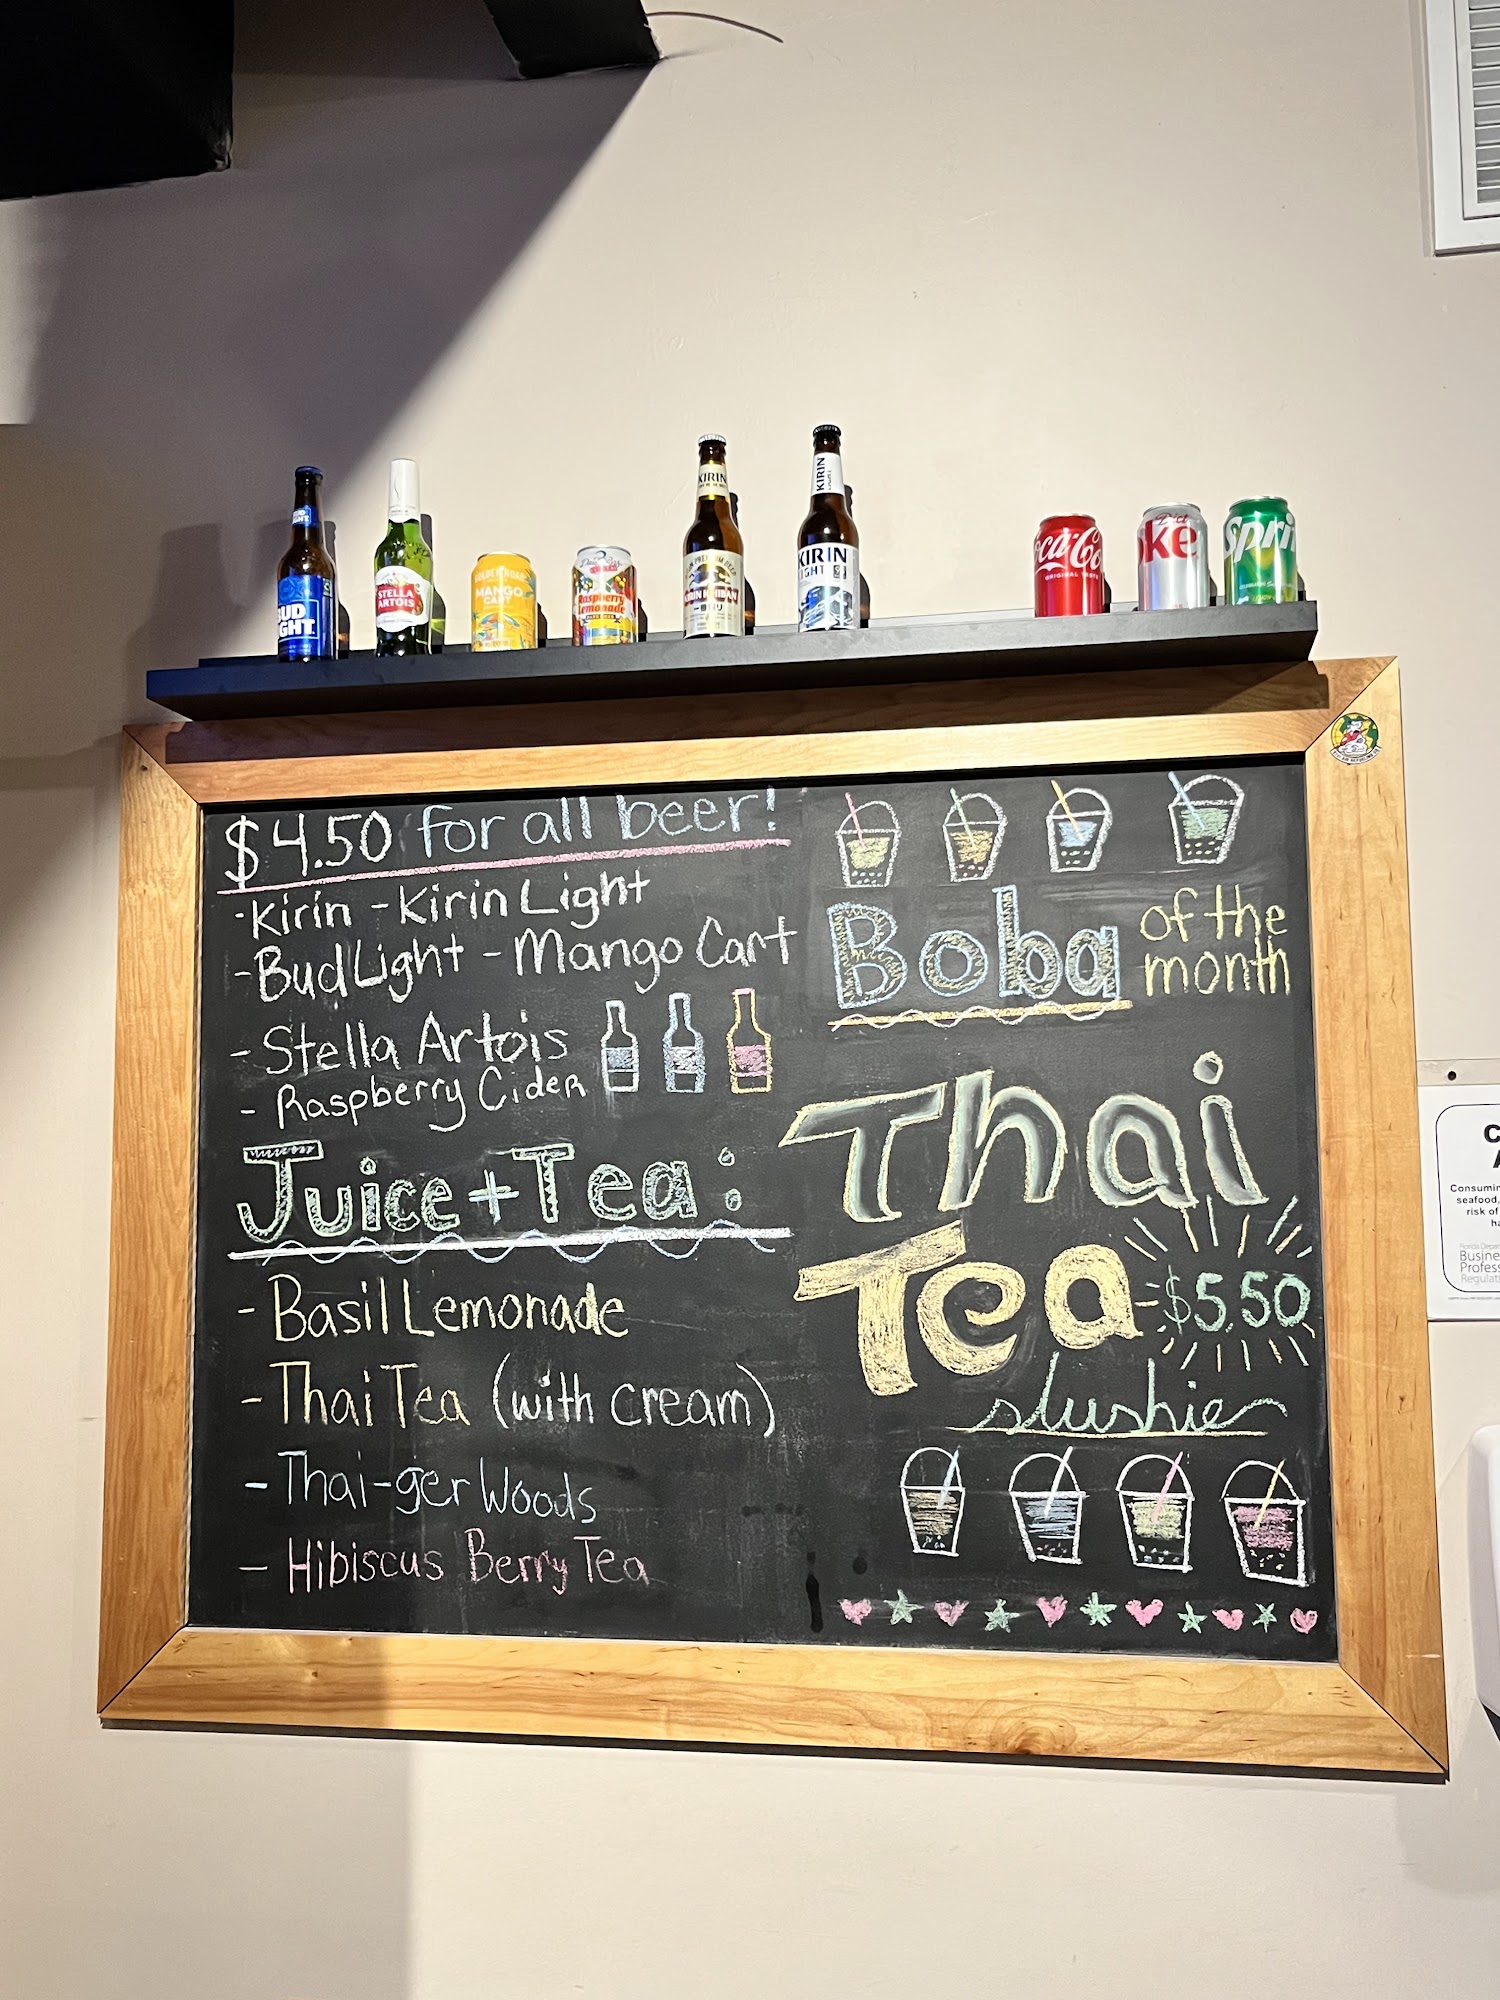 BUD
LIGHT
STELLA
ARTOIS
GOLDEN ROAD
MANGO
CART
Raspberry
Lemonade
KIRIN
KIRIN ICHIBAN
KIRIN
LIGHT
KIRIN
LIGHT
Coca-Cola
ORIGINAL TASTE
Diet
Coke
Sprite
$4.50 for all beer!
-Kirin -Kirin Light
-Bud Light -Mango Cart
-Stella Artois
- Raspberry Cider
Juice + Tea:
- Basil Lemonade
- Thai Tea (with cream)
- Thai-ger Woods
- Hibiscus Berry Tea
Boba of the
month
Thai
Tea $5.50
slushie
Consumin
seafood,
risk of
Business
Profess
Regulati